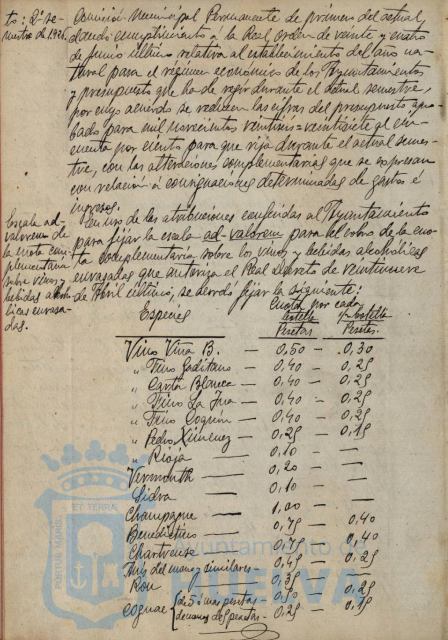 to: 2º se-
mestre de 1926.
Comisión Municipal Permanente de primero del actual,
dando cumplimiento a la Real orden de veinte y cuatro
de Junio último relativa al establecimiento del año na-
tural para el régimen económico de los Ayuntamientos
y presupuesto que ha de regir durante el actual semestre,
por cuyo acuerdo se reducen las cifras del presupuesto apro-
bado para mil novecientos veintiseis-veintisiete al cin-
cuenta por ciento para que rija durante el actual semes-
tre, con las alteraciones complementarias que se expresan
con relación a consignaciones determinadas de gastos é
ingresos.
Escala ad-
valorem de
la cuota com-
plementaria
sobre vinos y
bebidas alcohó-
licas envasa-
das.
En uso de las atribuciones conferidas al Ayuntamiento
para fijar la escala ad-valorem para el cobro de la cuo-
ta complementaria sobre los vinos y bebidas alcohólicas
envasadas que autoriza el Real Decreto de veintinueve
de Abril último, se acordó fijar la siguiente:
Cuota por cada
Especies botella ½ botella
Pesetas Pesetas.
Vino Viña B. — 0,50 — 0,30
" Fino Gaditano — 0,40 — 0,25
" Carta Blanca — 0,40 — 0,25
" Fino La Ina — 0,40 — 0,25
" Fino Coquin — 0,40 — 0,25
" Pedro Ximenez — 0,25 — 0,15
" Rioja — 0,10 —
Vermouth — 0,20 —
Sidra — 0,10 —
Champagne — 1,00 —
Benedictino — 0,75 — 0,40
Chartreuse — 0,75 — 0,40
Anis del mono y similares — 0,45 — 0,25
Ron — 0,35 —
Cognac { de 5 ó mas pesetas — 0,50 — 0,25
de menos de 5 pesetas — 0,25 — 0,15
PORTUS MARIS
ET TERRAE
Ayuntamiento de
HUELVA